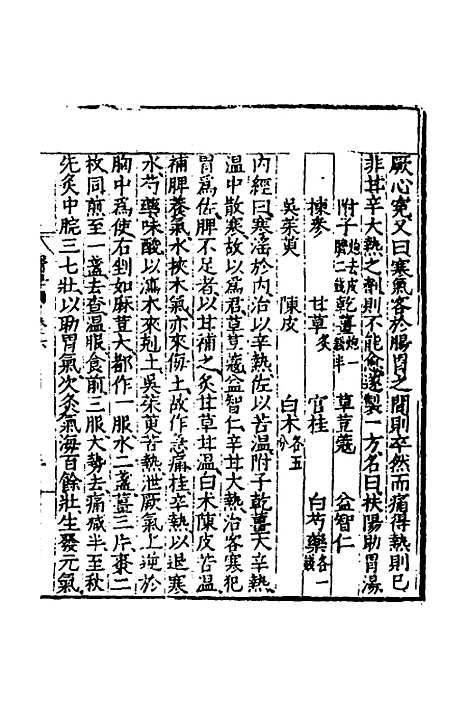 厥心究又曰寒氣客於腸胃之間則卒然而痛得熱則已
非甘辛大熱之劑則不能愈遂製一方名曰扶陽助胃湯
附子炮去皮臍二錢 乾薑炮一錢半 草荳蔻 益智仁
揀參 甘草炙 官桂 白芍藥各一錢
吳茱萸 陳皮 白木各五分
內經曰寒滛於內治以辛熱佐以苦溫附子乾薑大辛熱
溫中散寒故以為君草荳蔻益智仁辛甘大熱治客寒犯
胃爲佐脾不足者以甘補之炙甘草甘溫白木陳皮苦溫
補脾養氣水挾木氣亦來侮土故作急痛桂辛熱以退寒
水芍藥味酸以瀉木來剋土吳茱萸苦熱泄厥氣上逆於
胸中爲使右剉如麻荳大都作一服水二盞薑三片棗二
枚同煎至一盞去查温服食前三服大勢去痛減半至秋
先灸中脘三七壯以助胃氣次灸氣海百餘壯生發元氣